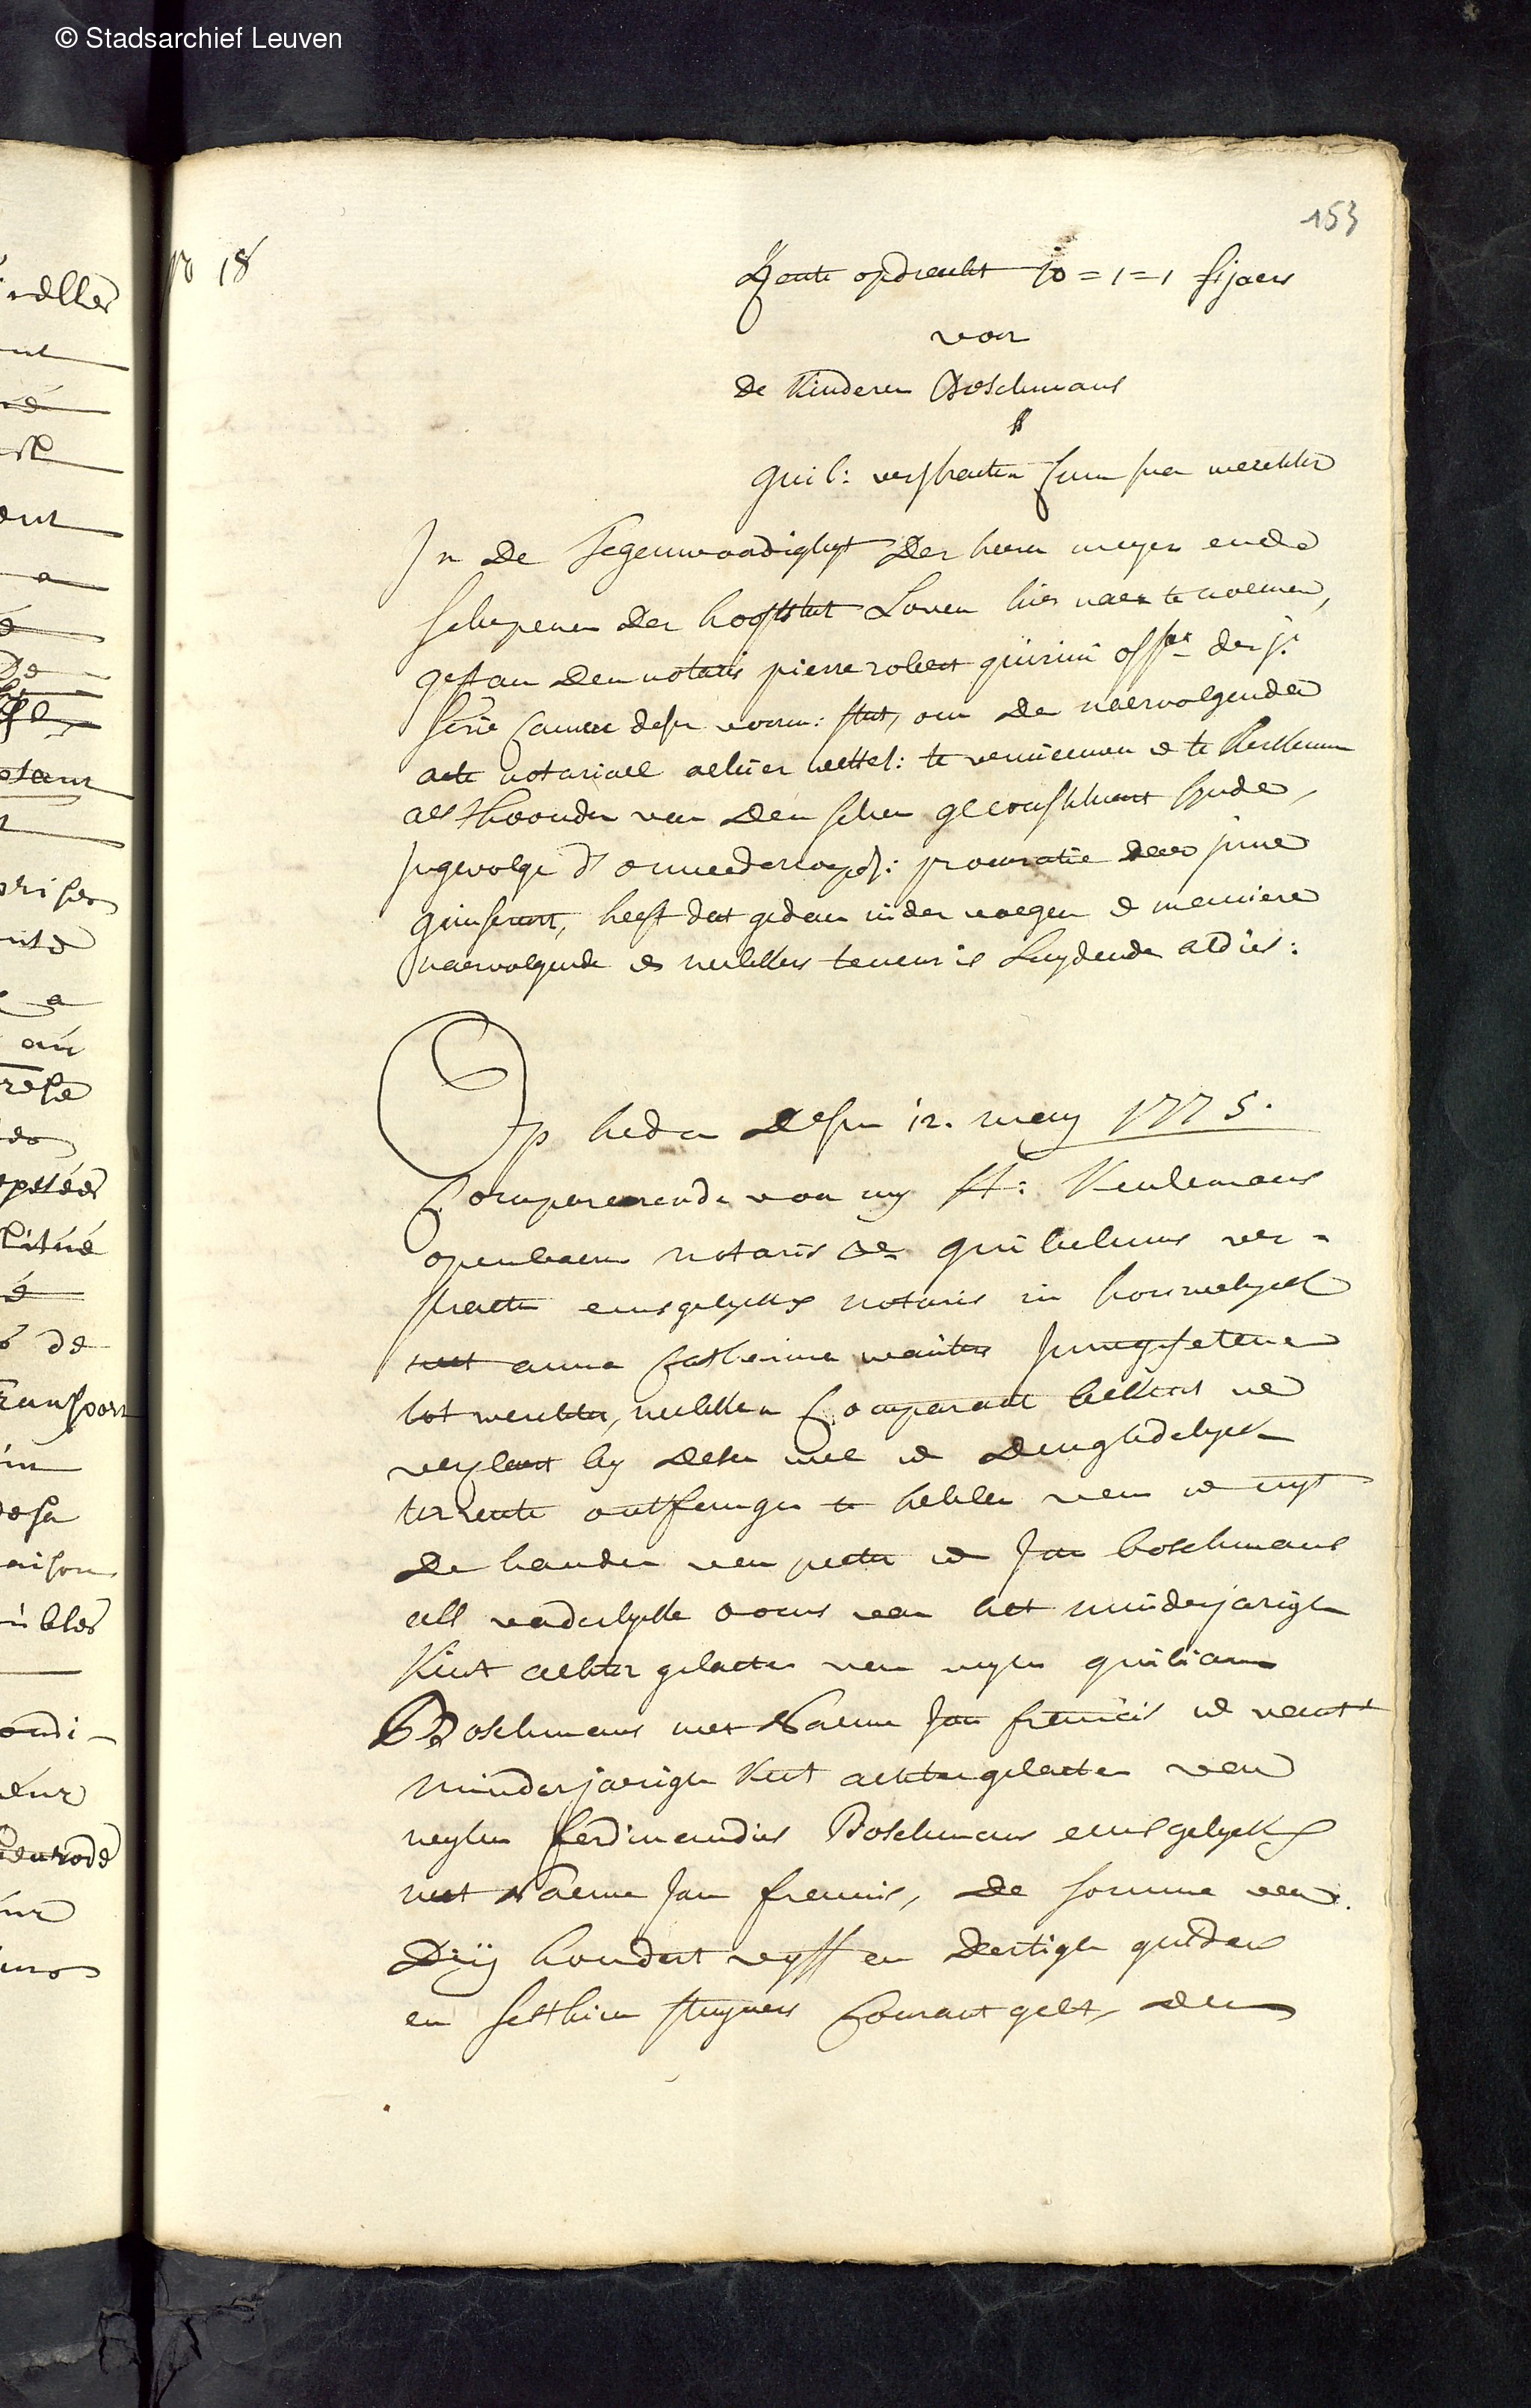 © Stadsarchief Leuven
153
No 18
Rente opdracht 10=1=1 sjaers
voor
de kinderen Boschmans
//
Guil: verstraeten cum sua werchter
In de tegenwoordigheyt der heeren meyer ende
schepenen der hooftstadt Loven hier naer te noemen,
gestaen den notaris pierre robert quirini off.ael der
secrie camere deser voorn: stadt, om de naervolgende
acte notariael alhier wettel: te vernieuwen ende te herkennen
als thoonder van den selven geconstitueert synde,
ingevolge d'onwederroepel: procuratie daer inne
geinsereert, heeft dat gedaen in der voegen ende maniere
naervolgende ende welckers teneur is luydende aldus:
Op heden desen 12. mey 1775.
Comparerende voor my H: Keulemans
openbaer notaris Sr guilielmus ver=
straeten eensgelyckx notaris in houwelyck
met anna catharina wauters innegesetene
tot werchter, welcken comparant bekent ende
verclaert by desen wel ende deugdelyck
ter rente ontfangen te hebben van ende uyt
de handen van peeter ende Jan boschmans
als vaderlycke ooms van het minderjarigh
kint achter gelaeten van wylen guiliam
Boschmans met naeme Jan francis ende van't
minderjarigh kint achtergelaeten van
wylen ferdinandus Boschmans eensgelyckx
met naeme Jan francis, de somme van
Dry hondert vyff en dertigh guldens
en sesthien stuyvers courant gelt, den